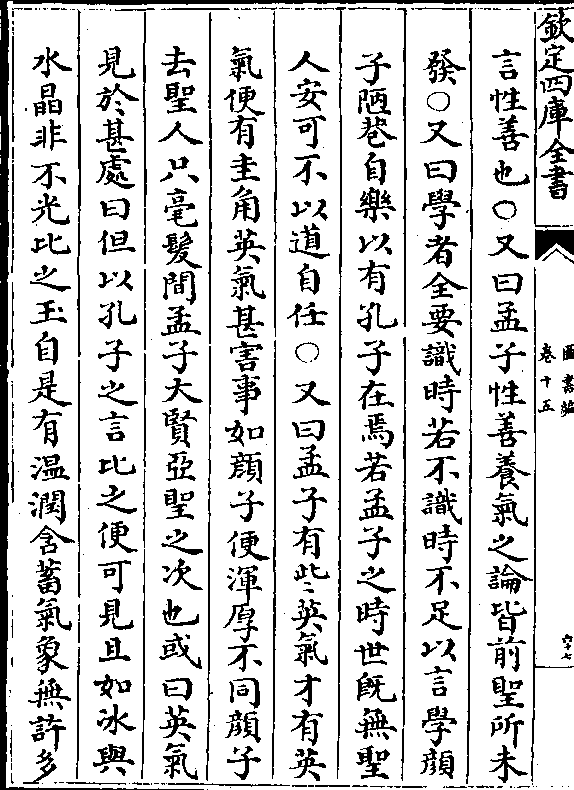 欽定四庫全書
圖書編
卷十五
六十七
言性善也○又曰孟子性善養氣之論皆前聖所未
發○又曰學者全要識時若不識時不足以言學顔
子陋巷自樂以有孔子在焉若孟子之時世既無聖
人安可不以道自任○又曰孟子有些英氣才有英
氣便有圭角英氣甚害事如顔子便渾厚不同顔子
去聖人只毫髮間孟子大賢亞聖之次也或曰英氣
見於甚處曰但以孔子之言比之便可見且如冰與
水晶非不光比之玉自是有温潤含蓄氣象無許多